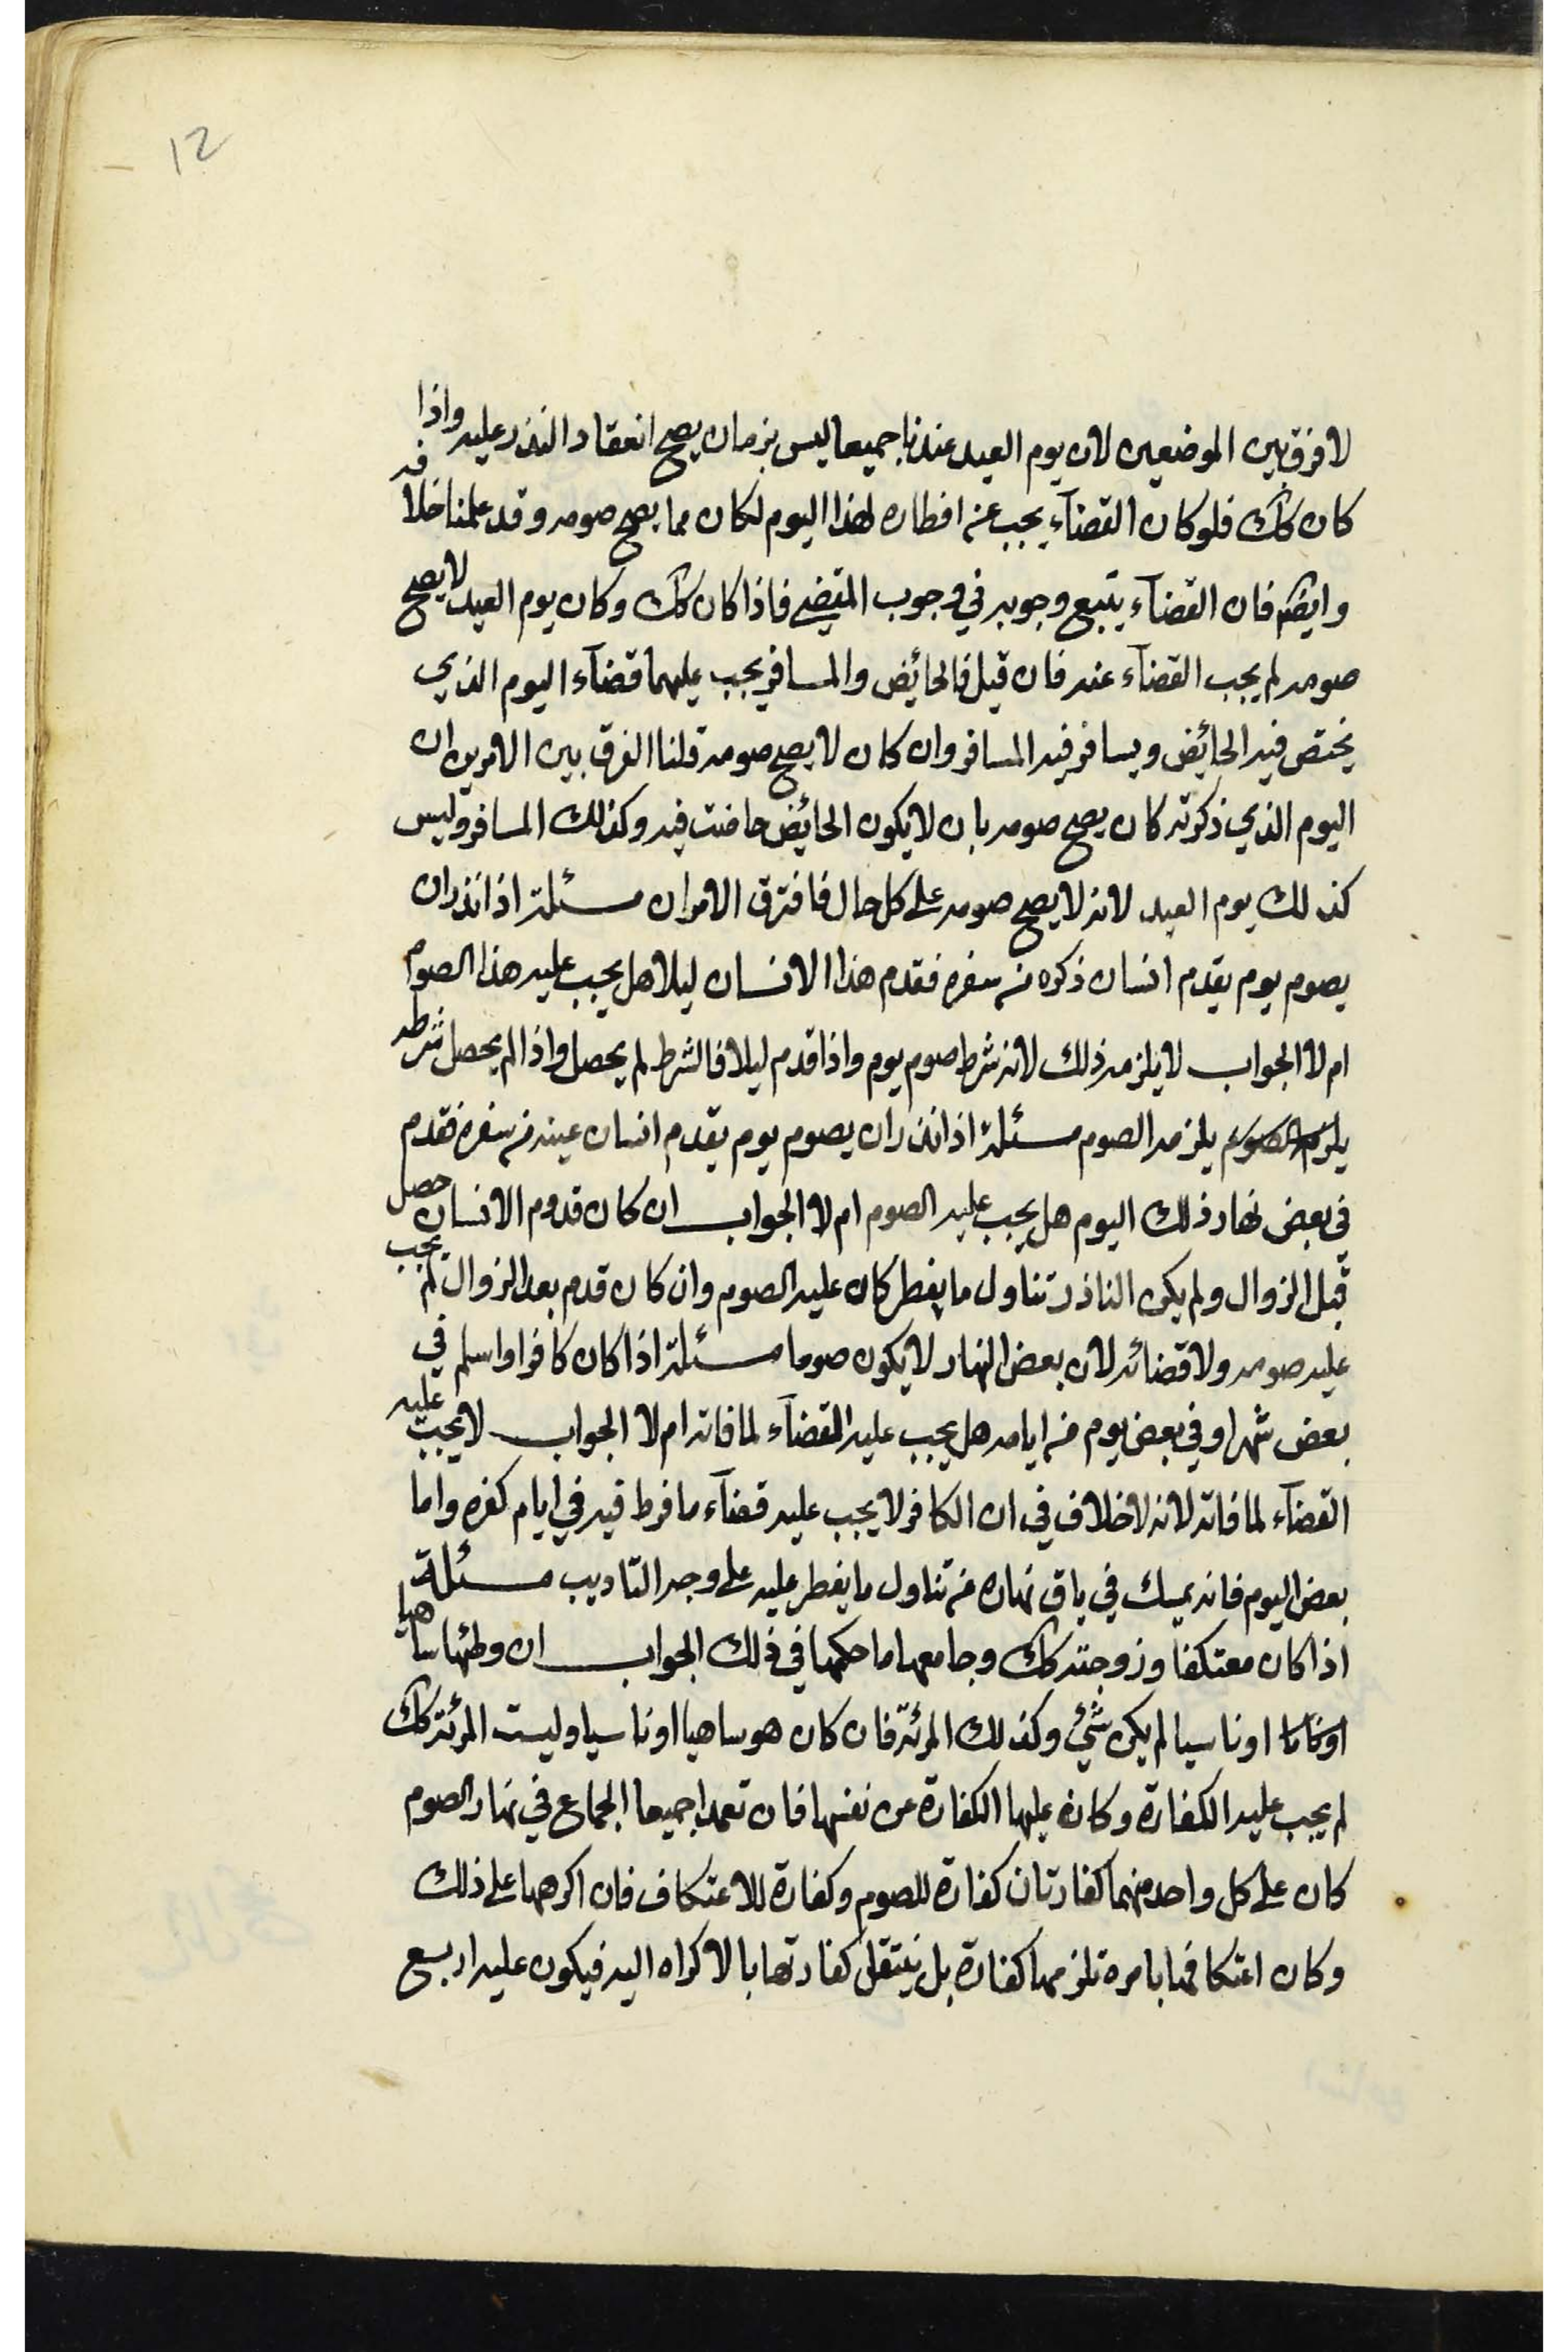 12
لا فرق بين الموضعين لان يوم العيد عندنا جميعا ليس بزمان يصح انعقاد النذر عليه واذا
كان كك فلو كان القضآء يجب عنه افطاره لهذا اليوم لكان مما يصح صومه وقد علمنا خلافه
وايضا فان القضآء يتبع وجوبه في وجوب المقضي فاذا كان كك وكان يوم العيد لا يصح
صومه لم يجب القضآء عنه فان قيل فالحائيض والمسافر يجب عليهما قضآء اليوم الذي
يختص فيه الحائيض ويسافر فيه المسافر وان كان لا يصح صومه قلنا الفرق بين الامرين ان
اليوم الذي ذكرته كان يصح صومه بان لا يكون الحائيض حاضت فيه وكذلك المسافر وليس
كذلك يوم العيد لانه لا يصح صومه على كل حال فافترق الامران مسئلة اذا نذر ان
يصوم يوم يقدم انسان ذكره من سفره فقدم هذا الانسان ليلا هل يجب عليه هذا الصوم
ام لا الجواب لا يلزمه ذلك لانه شرط صوم يوم واذا قدم ليلا فالشرط لم يحصل واذا لم يحصل شرطه
يلزمه الصوم مسئلة اذا نذر ان يصوم يوم يقدم انسان عينه من سفره فقدم
في بعض نهار ذلك اليوم هل يجب عليه الصوم ام لا الجواب ان كان قدوم الانسان حصل
قبل الزوال ولم يكن الناذر تناول ما يفطر كان عليه الصوم وان كان قدم بعد الزوال لم يجب
عليه صومه ولا قضائه لان بعض النهار لا يكون صوما مسئلة اذا كان كافرا واسلم في
بعض شهر او في بعض يوم من ايامه هل يجب عليه القضآء لما فاته ام لا الجواب لا يجب عليه
القضآء لما فاته لانه لا خلاف في ان الكافر لا يجب عليه قضآء ما فرط فيه في ايام كفره واما
بعض اليوم فانه يمسك في باق نهاره من تناول ما يفطر عليه على وجه التاديب مسئلة
اذا كان معتكفا وزوجته كك وجامعها ما حكمها في ذلك الجواب ان وطئها ساهيا
او ناسيا لم يكن شيئ وكذلك المرئة فان كان هو ساهيا او ناسيا وليست المرئة كك
لم يجب عليه الكفارة وكان عليها الكفارة عن نفسها فان تعمدا جميعا الجماع في نهار الصوم
كان على كل واحد منهما كفارتان كفارة للصوم وكفارة للاعتكاف فان اكرهها على ذلك
وكان اعتكافها بامره تلزمها كفارة بل ينتقل كفارتها بالاكراه اليه فيكون عليه اربع